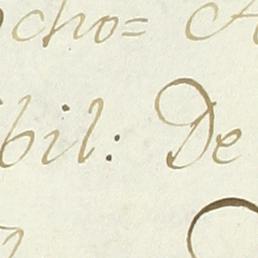 cho= C
bil: De